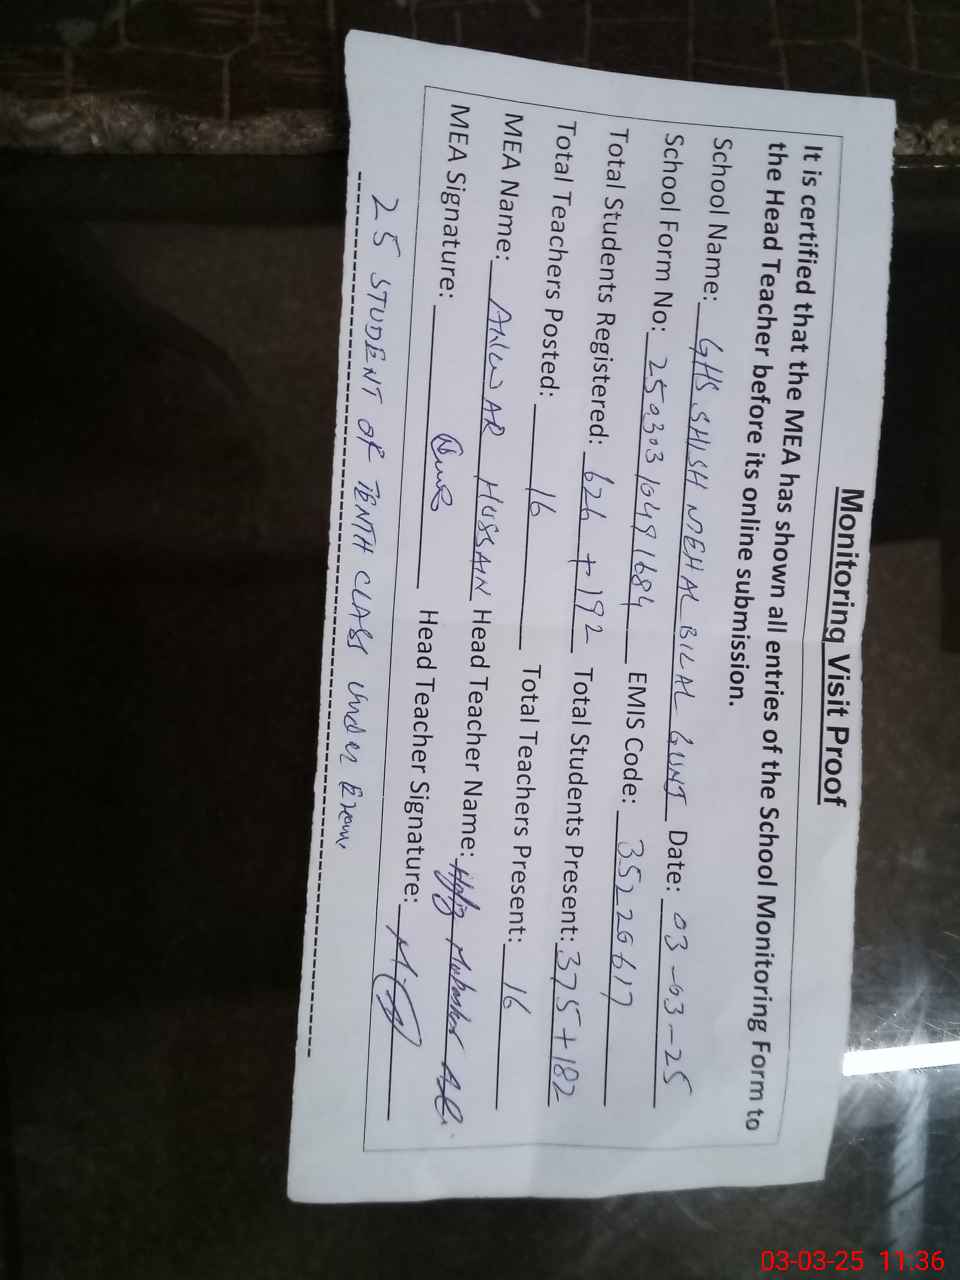 Monitoring Visit Proof
It is certified that the MEA has shown all entries of the School Monitoring Form to
the Head Teacher before its online submission.
School Name: GHS. SHISH MEHAL BILAL GUNJ Date: 03-03-25
School Form No: 25030310491684 EMIS Code: 35226617
Total Students Registered: 626 + 192 Total Students Present: 375+182
Total Teachers Posted: 16 Total Teachers Present: 16
MEA Name: ANWAR HUSSAIN Head Teacher Name: Hafiz Mubashar Ali
MEA Signature: Head Teacher Signature:
25 STUDENT OF TENTH CLASS under Exam
03-03-25 11:36